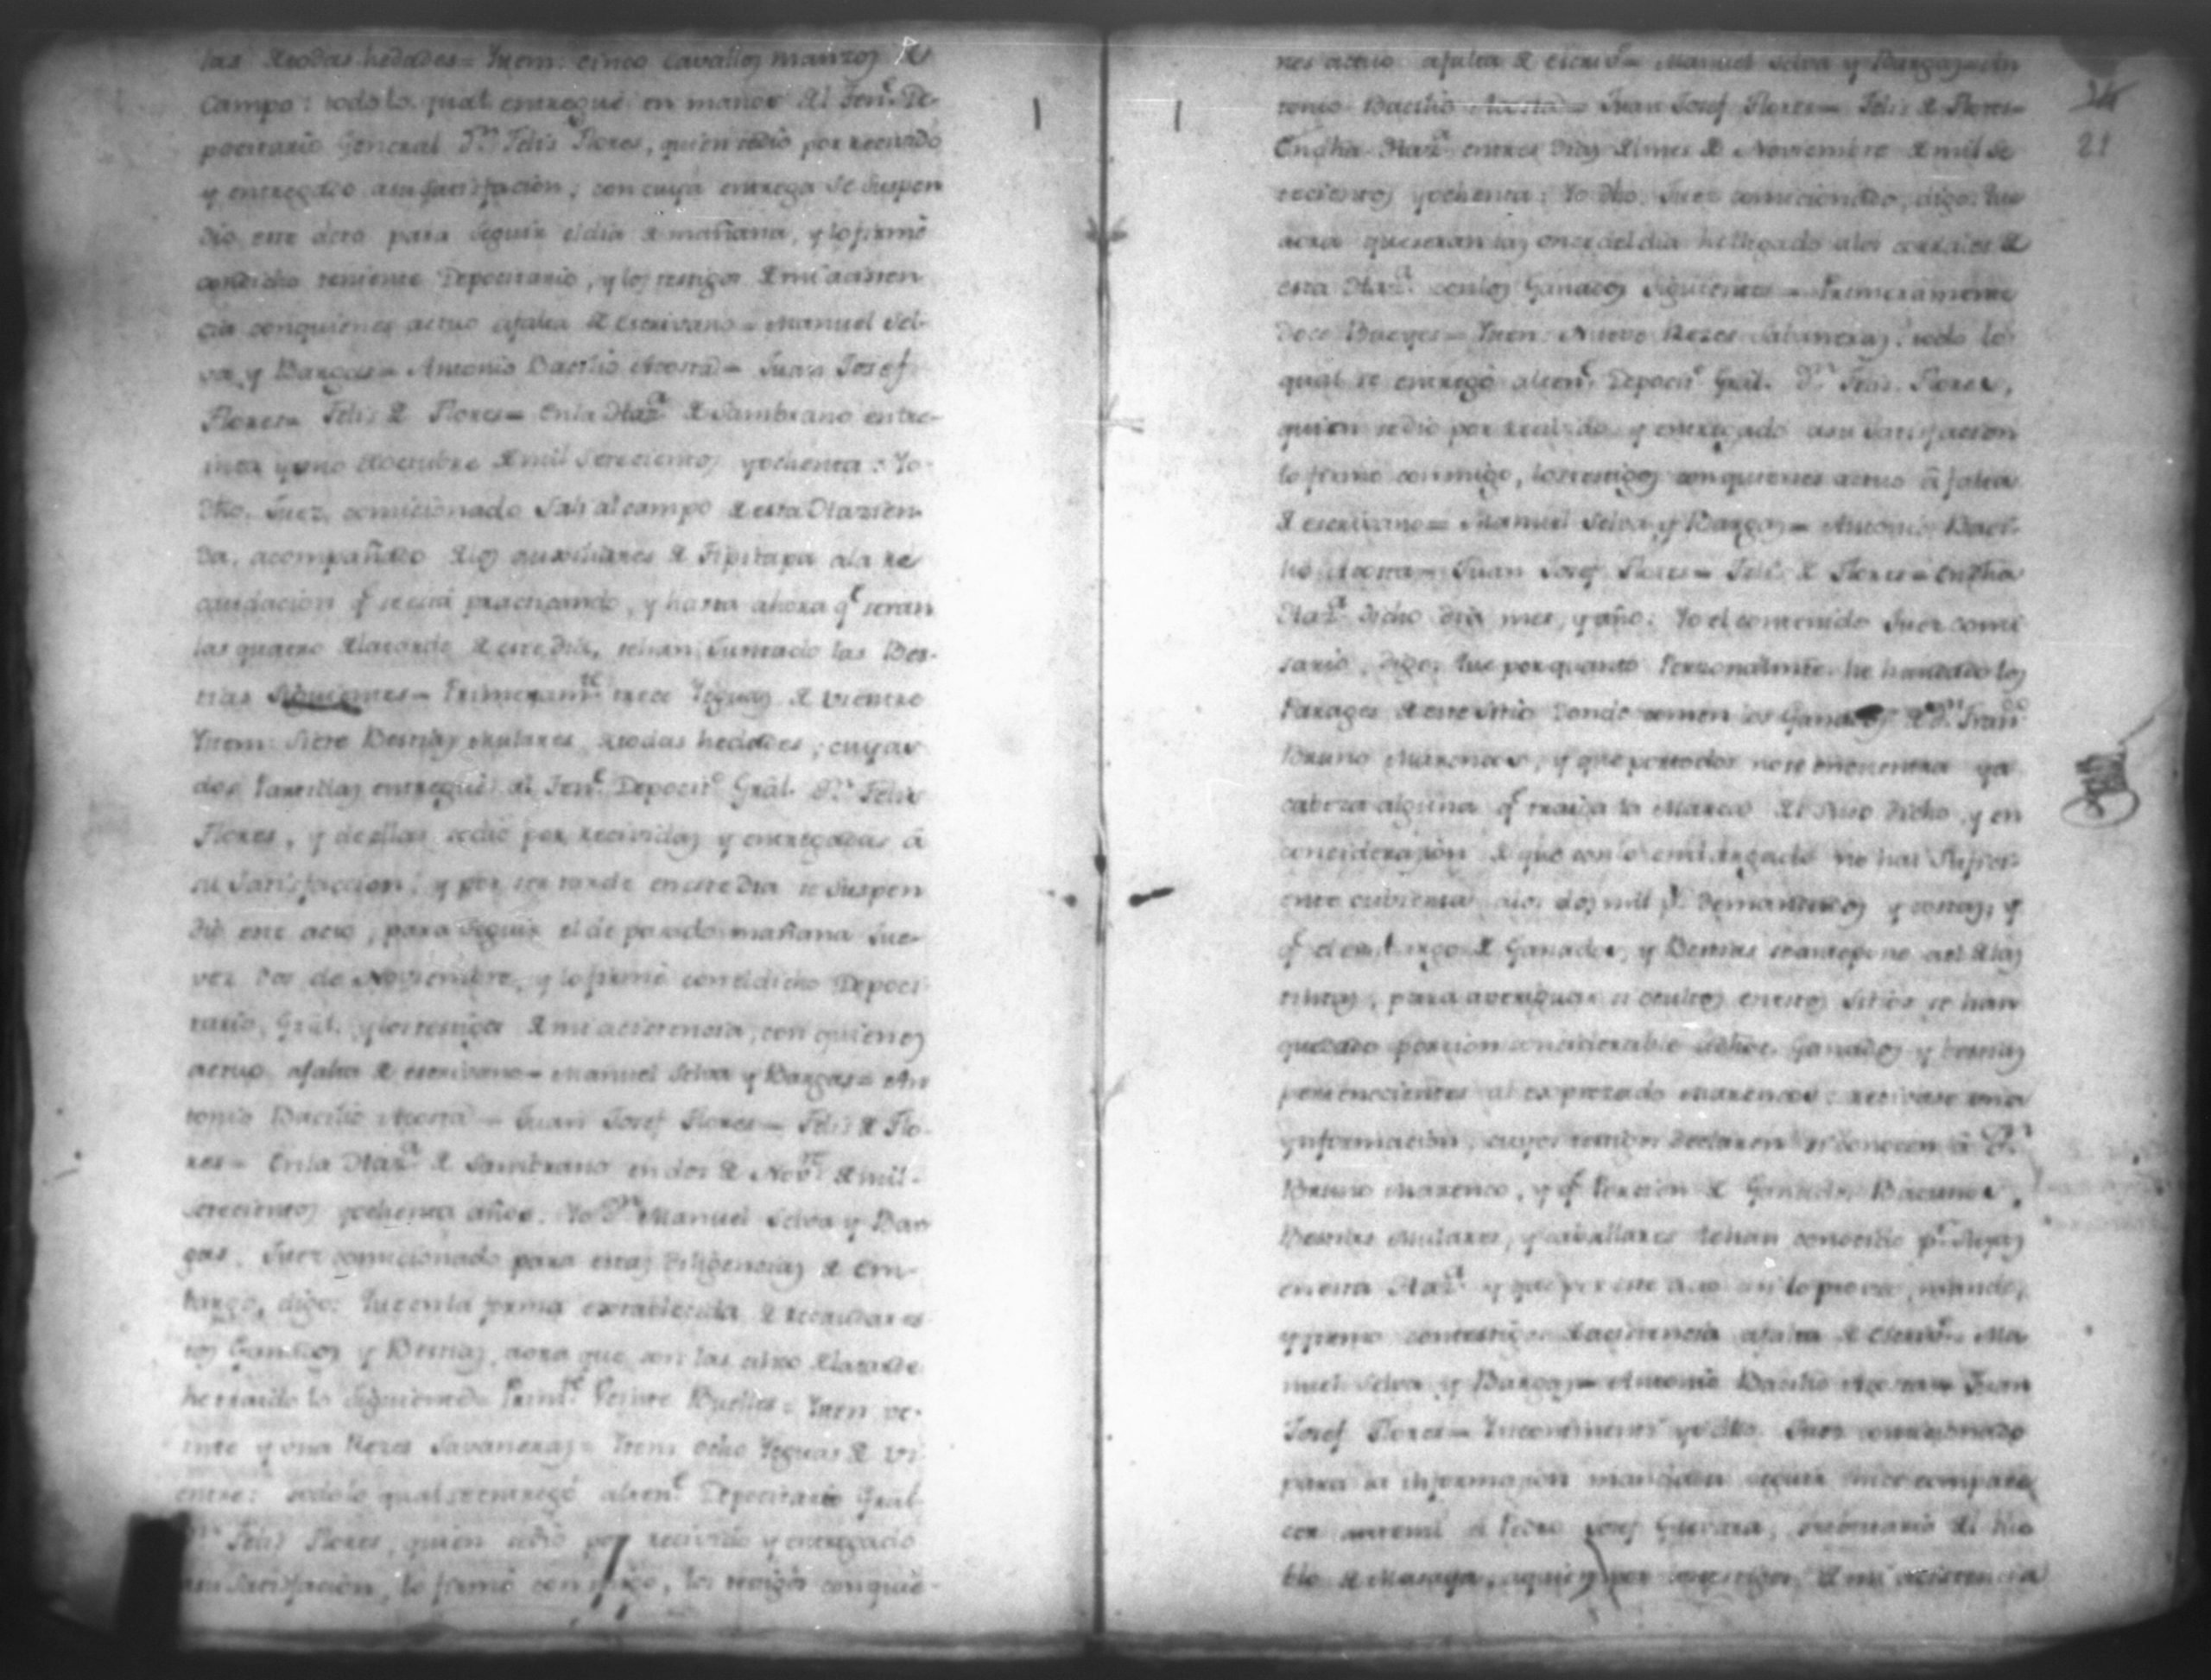 las de todas hedades = Yttem: cinco cavallos manzos de
Campo: todo lo qual entregué en manos del Tente. De-
pocitario General Dn. Felis Flores, quien sedió por recivido
y entregado asu satisfacion; con cuya entrega se suspen
dió este acto para seguir el dia de mañana, y lo firmé
condicho teniente Depocitario, y los testigos de mi acisten
cia conquienes actuo afalta de escrivano = Manuel Sel-
va y Bargas = Antonio Bacilio Acosta = Juan Josef
Flores = Felis de Flores = En la Hazda. de Sambrano entre-
inta y uno de octubre de mil setecientos y ochenta: Yo
dho. Juez comicionado sali al campo de esta Hazien-
da, acompañado de los auxiliares de Tipitapa ala re
caudacion qe. se está practicando, y hasta ahora qe. serán
las quatro de la tarde de este dia, se han juntado las Bes-
tias siguientes = Primeramte. trece Yeguas de vientre
Yttem: siete Bestias mulares de todas hedades; cuyas
dos Partidas entregué al Tene. Depocito. Grâl. Dn. Felis
Flores, y de ellas sedió por recividas y entregadas â
su satisfaccion; y por ser tarde en este dia se suspen
dió este acto, para seguir el de pasado mañana Jue-
vez dos de Noviembre, y lo firmé con el dicho Depoci
tario Grâl. y los testigos de mi acistencia, con quienes
actuo afalta de escrivano = Manuel Selva y Bargas = An
tonio Bacilio Acosta = Juan Josef Flores = Felis de Flo-
res = En la Hazda. de Sambrano en dos de Nove. de mil
setecientos y ochenta años. Yo Dn. Manuel Selva y Bar
gas, Juez comicionado para estas diligencias de em-
bargo, digo: Que en la forma establecida de recaudar es
tos Ganados y Bestias, aora que son las cinco de la tarde
he traido lo siguiente = Primte. Veinte Buelles = Yttem ve-
inte y una Rezes Savaneras = Yttem ocho Yeguas de vi
entre: todo lo qual se entregó al tene. Depocitario Grâl.
Dn. Felis Flores, quien sedió por recivido y entregado
asu satisfacion, lo firmó conmigo, los testigos conquie-
nes actuo afalta de escrivo. = Manuel Selva y Bargas = An
tonio Bacilio Acosta = Juan Josef Flores = Felis de Flores =
21
En dha Hazda. entres dias del mes de Noviembre de mil se
tecientos y ochenta: Yo dho. Juez comicionado, digo: Que
aora que serán las onze del dia he llegado alos corrales de
esta Hazda. con los Ganados siguientes = Primeramente
Doce Bueyes = Yttem: Nueve Rezes Sabaneras: todo lo
qual se entregó altene. Depocito. Grâl. Dn. Felis Flores,
quien sedio por recivido y entregado asu satisfacion
lo firmó conmigo, los testigos conquienes actuo â falta
de escrivano = Manuel Selva, y Bargas = Antonio Baci-
lio Acosta = Juan Josef Flores = Felis de Flores = En dha
Hazda. dicho dia mes, y año: Yo el contenido Juez comi
sario, digo: Que por quanto Personalmte. he andado los
Parages de este sitio donde comen los Ganados de Dn. Franco.
Bruno Marenco, y que por todos no se encuentra ya
cabeza alguna qe. traiga la Marca del suso dicho, y en
concideracion de que con lo embargado no hai sufici-
ente cubierta alos dos mil ps. demandados y costas, y
qe. el embargo de Ganados, y Bestias se antepone
para averiguar si ocultos en estos sitios se han
quedado porcion conciderable de dhos. Ganados y bestias
pertenecientes al expresado Marenco: recivase una
ynformacion, cuyos testigos declaren si conocen â Dn.
Bruno Marenco, y qe. Porcion de Ganados Bacunos,
Bestias Mulares, y cavallares le han conocido pr. suyas
en esta Hazda. y que por este auto asi lo provee, mando,
y firmo con testigos de acistencia afalta de Escrivo. = Ma
nuel Selva y Bargas = Antonio Bacilio Acosta = Juan
Josef Flores = Yncontinenti yo dho. Juez comicionado
para la informacion mandada seguir hice compare
cer antemi a Pedro Josef Guevara, del Pue
blo de Masaya, aquien por antetestigos de mi acistencia